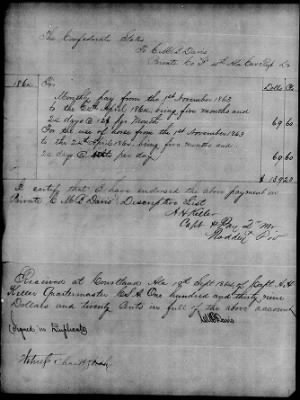 The Confederate States
To C. M. L. Davis
Private Co F 10th Ala Cav Regt Dr
1864 For Dolls Cts
Monthly pay from the 1st November 1863
to the 24th April 1864, being five months and
24 days @ 12$ per Month 69 60
For the use of horse from the 1st November 1863
to the 24th April 1864, being five months and
24 days @ per day 69 60
$ 139 20
I certify that I have endorsed the above payment on
Private C M L Davis' Descriptive List
A H Keller
Capt &
Received at Courtland Ala 19th Sept 1864 of Capt A H
Keller Quartermaster C.S.A. One hundred and thirty nine
Dollars and twenty Cents in full of the above account
(Signed in Duplicate)
Davis
Witness